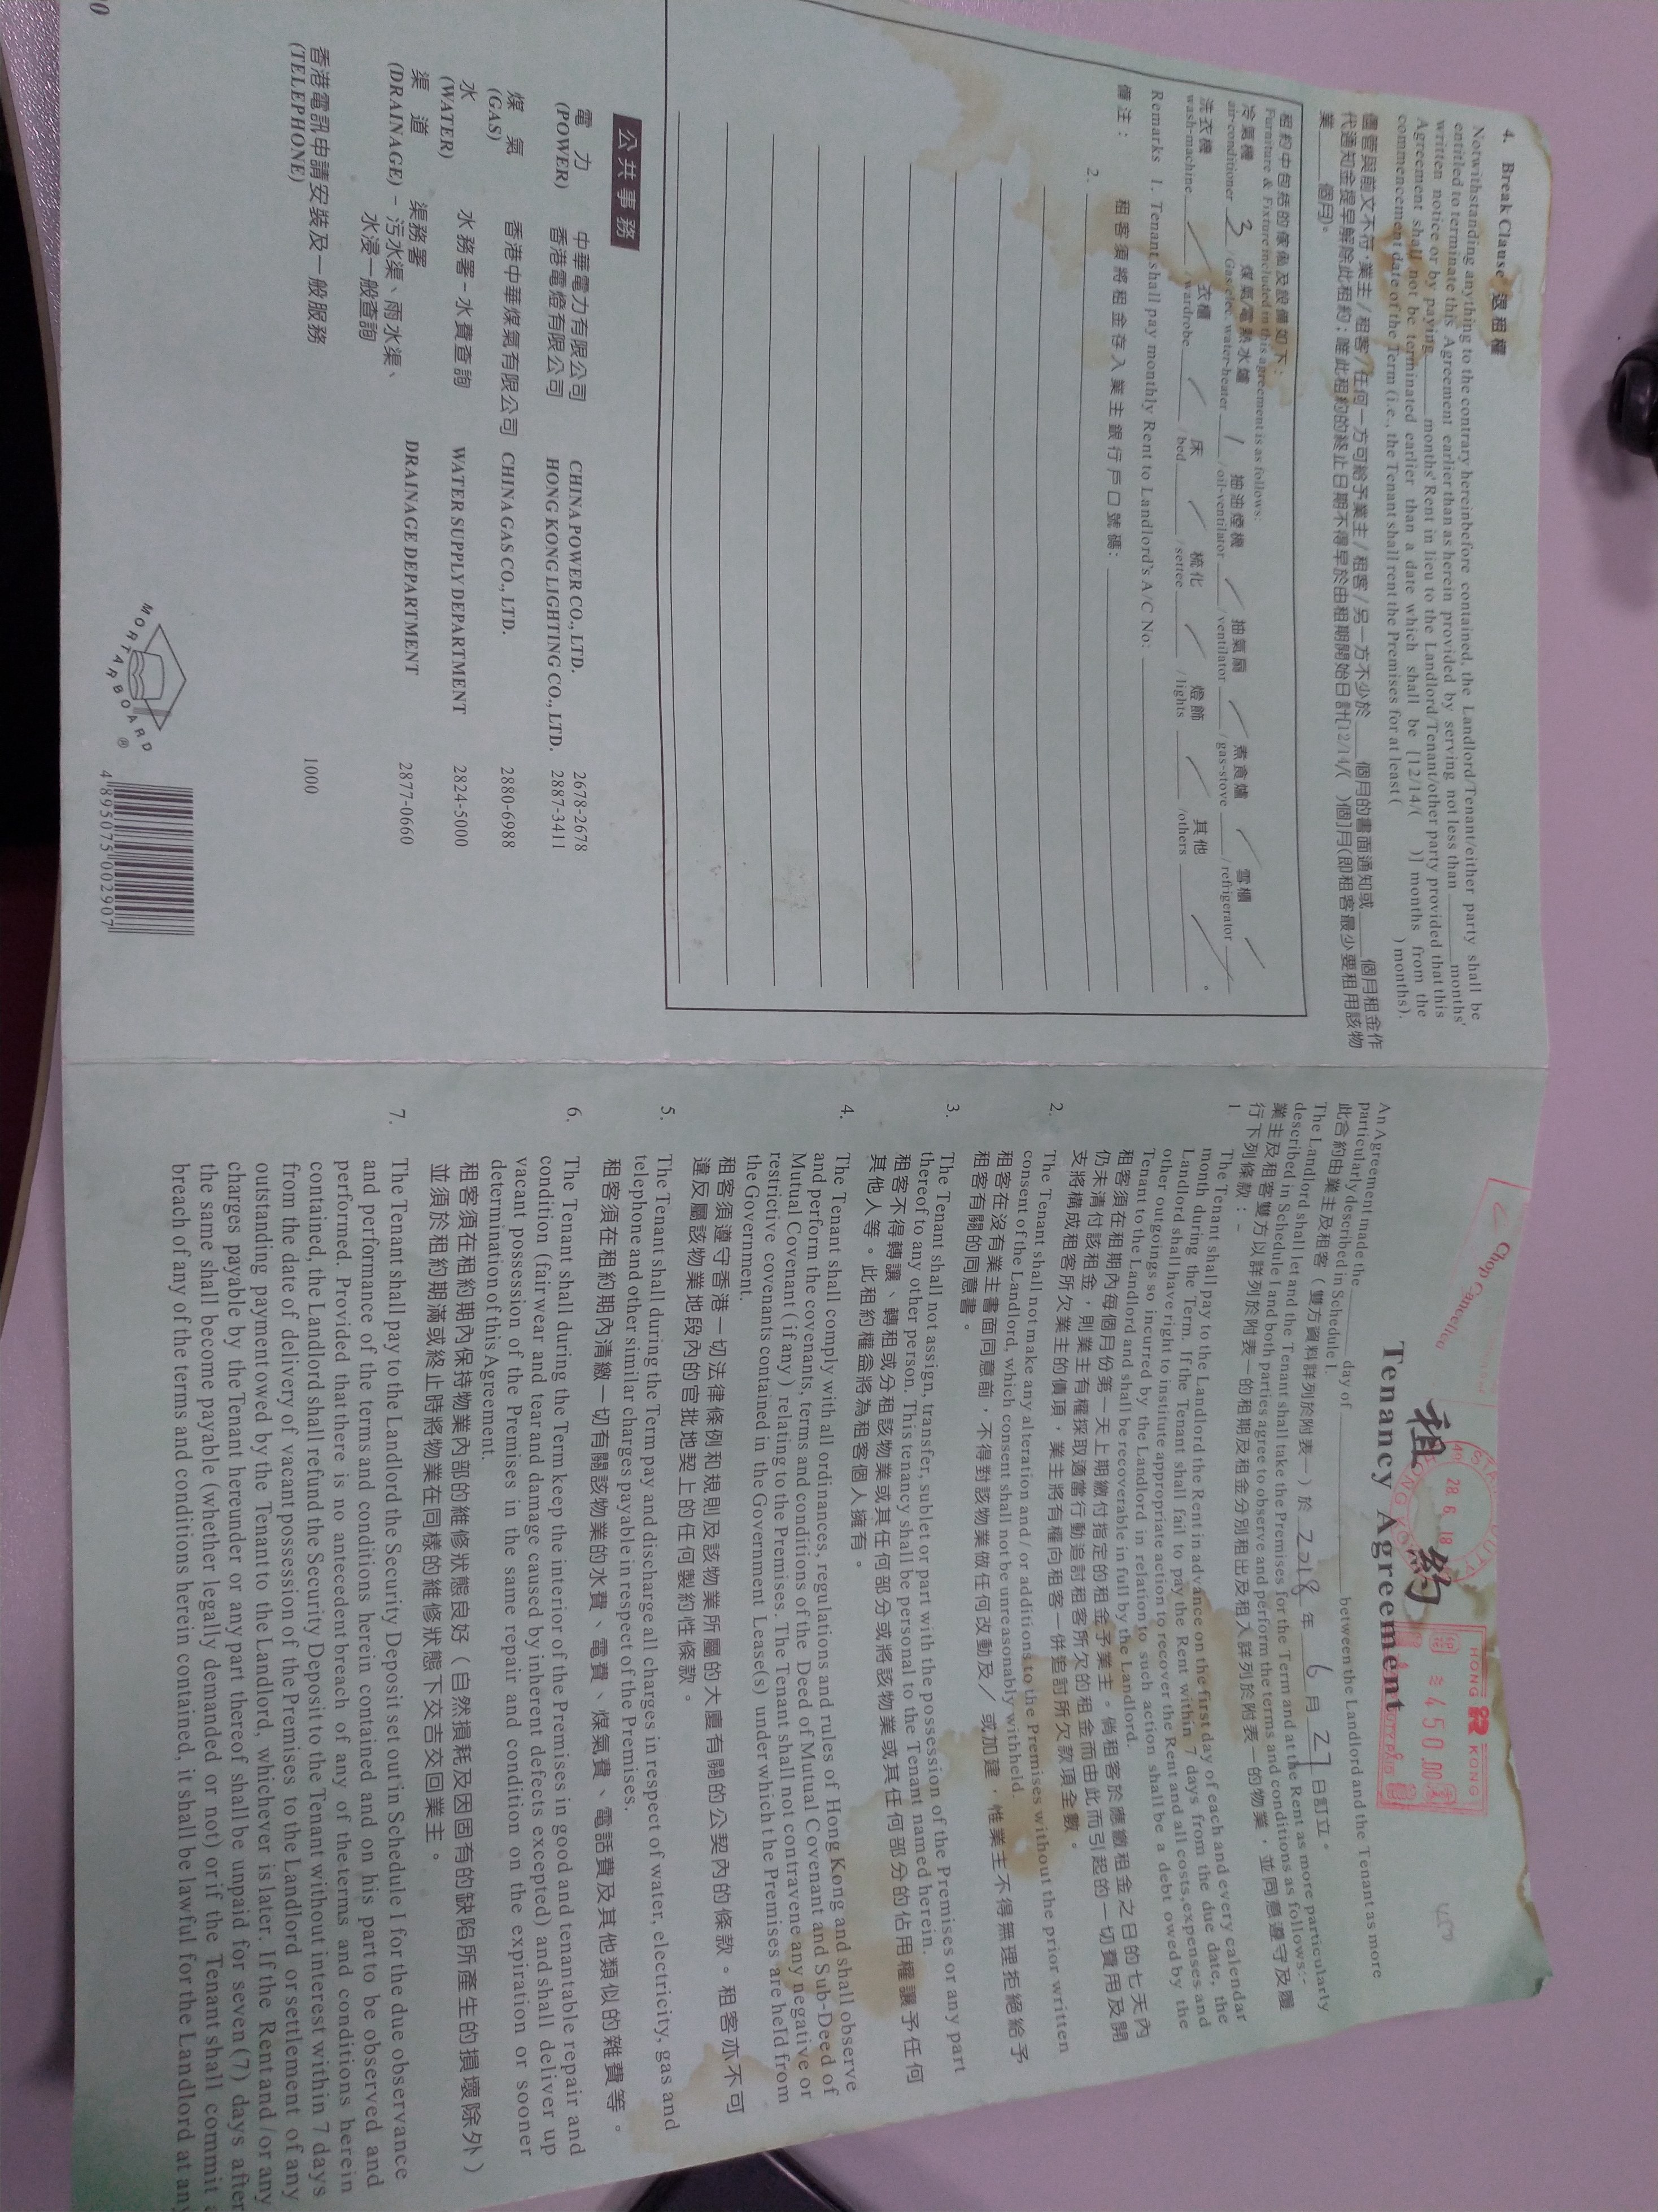 4. Break Clause 退租權
Notwithstanding anything to the contrary hereinbefore contained, the Landlord/Tenant/either party shall be
entitled to terminate this Agreement earlier than as herein provided by serving not less than ____ months'
written notice or by paying ____ months' Rent in lieu to the Landlord/Tenant/other party provided that this
Agreement shall not be terminated earlier than a date which shall be [12/14/( )] months from the
commencement date of the Term (i.e., the Tenant shall rent the Premises for at least ( ) months).
儘管與前文不符,業主/租客/任何一方可給予業主/租客/另一方不少於____個月的書面通知或____個月租金作
代通知金提早解除此租約;唯此租約的終止日期不得早於由租期開始日計[12/14/( )個]月(即租客最少要租用該物
業____個月)。
租約中包括的傢俬及設備如下:
Furniture & Fixture included in this agreement is as follows:
冷氣機 3 煤氣/電熱水爐 1 抽油煙機 / 抽氣扇 / 煮食爐 / 雪櫃 /
air-conditioner ____ /Gas/elec. water-heater ____ /oil-ventilator ____ /ventilator ____ /gas-stove ____ /refrigerator ____
洗衣機 / 衣櫃 / 床 / 梳化 / 燈飾 / 其他 / 。
wash-machine ____ /wardrobe ____ /bed ____ /settee ____ /lights ____ /others ____
Remarks 1. Tenant shall pay monthly Rent to Landlord's A/C No: ____
備注: 租客須將租金存入業主銀行戶口號碼: ____
2. ____
公共事務
電力 中華電力有限公司 CHINA POWER CO., LTD. 2678-2678
(POWER) 香港電燈有限公司 HONG KONG LIGHTING CO., LTD. 2887-3411
煤氣 香港中華煤氣有限公司 CHINA GAS CO., LTD. 2880-6988
(GAS)
水 水務署-水費查詢 WATER SUPPLY DEPARTMENT 2824-5000
(WATER)
渠道 渠務署 DRAINAGE DEPARTMENT 2877-0660
(DRAINAGE) - 污水渠、雨水渠、
水浸一般查詢
香港電訊申請安裝及一般服務 1000
(TELEPHONE)
MORTARBOARD ®
4 895075 002907
28. 6. 18
HONG KONG
450.00
租約
Tenancy Agreement
An Agreement made the ____ day of ____ between the Landlord and the Tenant as more
particularly described in Schedule I.
此合約由業主及租客(雙方資料詳列於附表一)於 2018 年 6 月 27 日訂立。
The Landlord shall let and the Tenant shall take the Premises for the Term and at the Rent as more particularly
described in Schedule I and both parties agree to observe and perform the terms and conditions as follows:-
業主及租客雙方以詳列於附表一的租期及租金分別租出及租入詳列於附表一的物業,並同意遵守及履
行下列條款:-
1. The Tenant shall pay to the Landlord the Rent in advance on the first day of each and every calendar
month during the Term. If the Tenant shall fail to pay the Rent within 7 days from the due date, the
Landlord shall have right to institute appropriate action to recover the Rent and all costs, expenses and
other outgoings so incurred by the Landlord in relation to such action shall be a debt owed by the
Tenant to the Landlord and shall be recoverable in full by the Landlord.
租客須在租期內每個月份第一天上期繳付指定的租金予業主。倘租客於應繳租金之日的七天內
仍未清付該租金,則業主有權採取適當行動追討租客所欠的租金而由此而引起的一切費用及開
支將構成租客所欠業主的債項,業主將有權向租客一併追討所欠款項全數。
2. The Tenant shall not make any alteration and / or additions to the Premises without the prior written
consent of the Landlord, which consent shall not be unreasonably withheld.
租客在沒有業主書面同意前,不得對該物業做任何改動及/或加建,惟業主不得無理拒絕給予
租客有關的同意書。
3. The Tenant shall not assign, transfer, sublet or part with the possession of the Premises or any part
thereof to any other person. This tenancy shall be personal to the Tenant named herein.
租客不得轉讓、轉租或分租該物業或其任何部分或將該物業或其任何部分的佔用權讓予任何
其他人等。此租約權益將為租客個人擁有。
4. The Tenant shall comply with all ordinances, regulations and rules of Hong Kong and shall observe
and perform the covenants, terms and conditions of the Deed of Mutual Covenant and Sub-Deed of
Mutual Covenant (if any) relating to the Premises. The Tenant shall not contravene any negative or
restrictive covenants contained in the Government Lease(s) under which the Premises are held from
the Government.
租客須遵守香港一切法律條例和規則及該物業所屬的大廈有關的公契內的條款。租客亦不可
違反屬該物業地段內的官批地契上的任何製約性條款。
5. The Tenant shall during the Term pay and discharge all charges in respect of water, electricity, gas and
telephone and other similar charges payable in respect of the Premises.
租客須在租約期內清繳一切有關該物業的水費、電費、煤氣費、電話費及其他類似的雜費等。
6. The Tenant shall during the Term keep the interior of the Premises in good and tenantable repair and
condition (fair wear and tear and damage caused by inherent defects excepted) and shall deliver up
vacant possession of the Premises in the same repair and condition on the expiration or sooner
determination of this Agreement.
租客須在租約期內保持物業內部的維修狀態良好(自然損耗及因固有的缺陷所產生的損壞除外)
並須於租約期滿或終止時將物業在同樣的維修狀態下交吉交回業主。
7. The Tenant shall pay to the Landlord the Security Deposit set out in Schedule I for the due observance
and performance of the terms and conditions herein contained and on his part to be observed and
performed. Provided that there is no antecedent breach of any of the terms and conditions herein
contained, the Landlord shall refund the Security Deposit to the Tenant without interest within 7 days
from the date of delivery of vacant possession of the Premises to the Landlord or settlement of any
outstanding payment owed by the Tenant to the Landlord, whichever is later. If the Rent and / or any
charges payable by the Tenant hereunder or any part thereof shall be unpaid for seven (7) days after
the same shall become payable (whether legally demanded or not) or if the Tenant shall commit a
breach of any of the terms and conditions herein contained, it shall be lawful for the Landlord at any